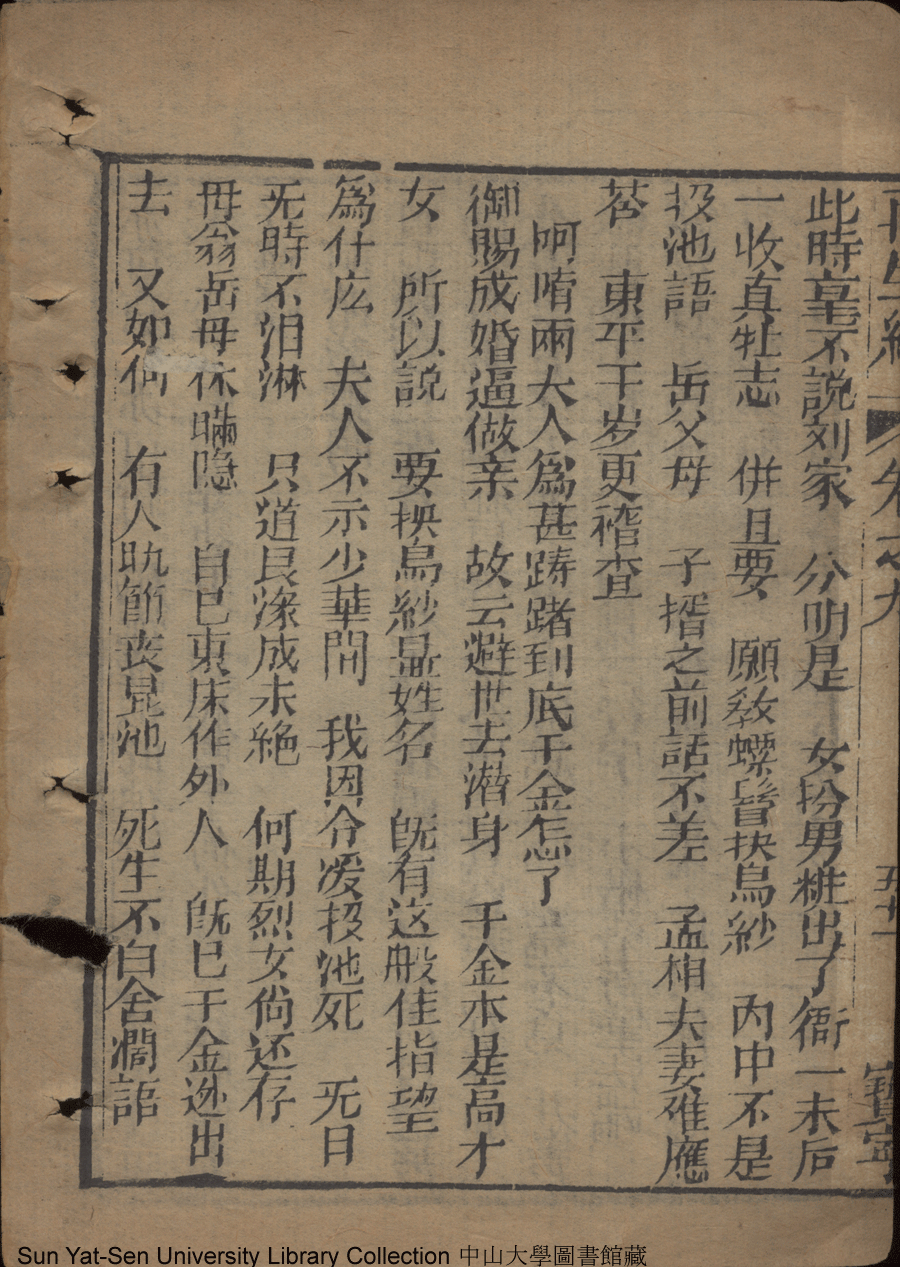 再生緣 卷之九 五十一 寶寧
此時章不說刘家 分明是 女扮男粧出了衙 一末后
一收真牡志 併且要 願教螺髻抉烏紗 內中不是
投池語 岳父母 子揟之前話不差 孟相夫妻难應
荅 東平千岁更稽查
呵唷兩大人為甚踌躇到底千金怎了
御賜成婚逼做亲 故云避世去潛身 千金本是高才
女 所以説 要抉烏紗显姓名 旣有这般佳指望
爲什庅 夫人不示少華聞 我因令嫒投池死 无日
无時不泪淋 只道艮缘成未絶 何期烈女尙还存
母翁岳母休瞞隐 自已東床作外人 旣已千金逊出
去 又如何 有人㧅節丧昆池 死生不白舍濶語
Sun Yat-Sen University Library Collection 中山大學圖書館藏